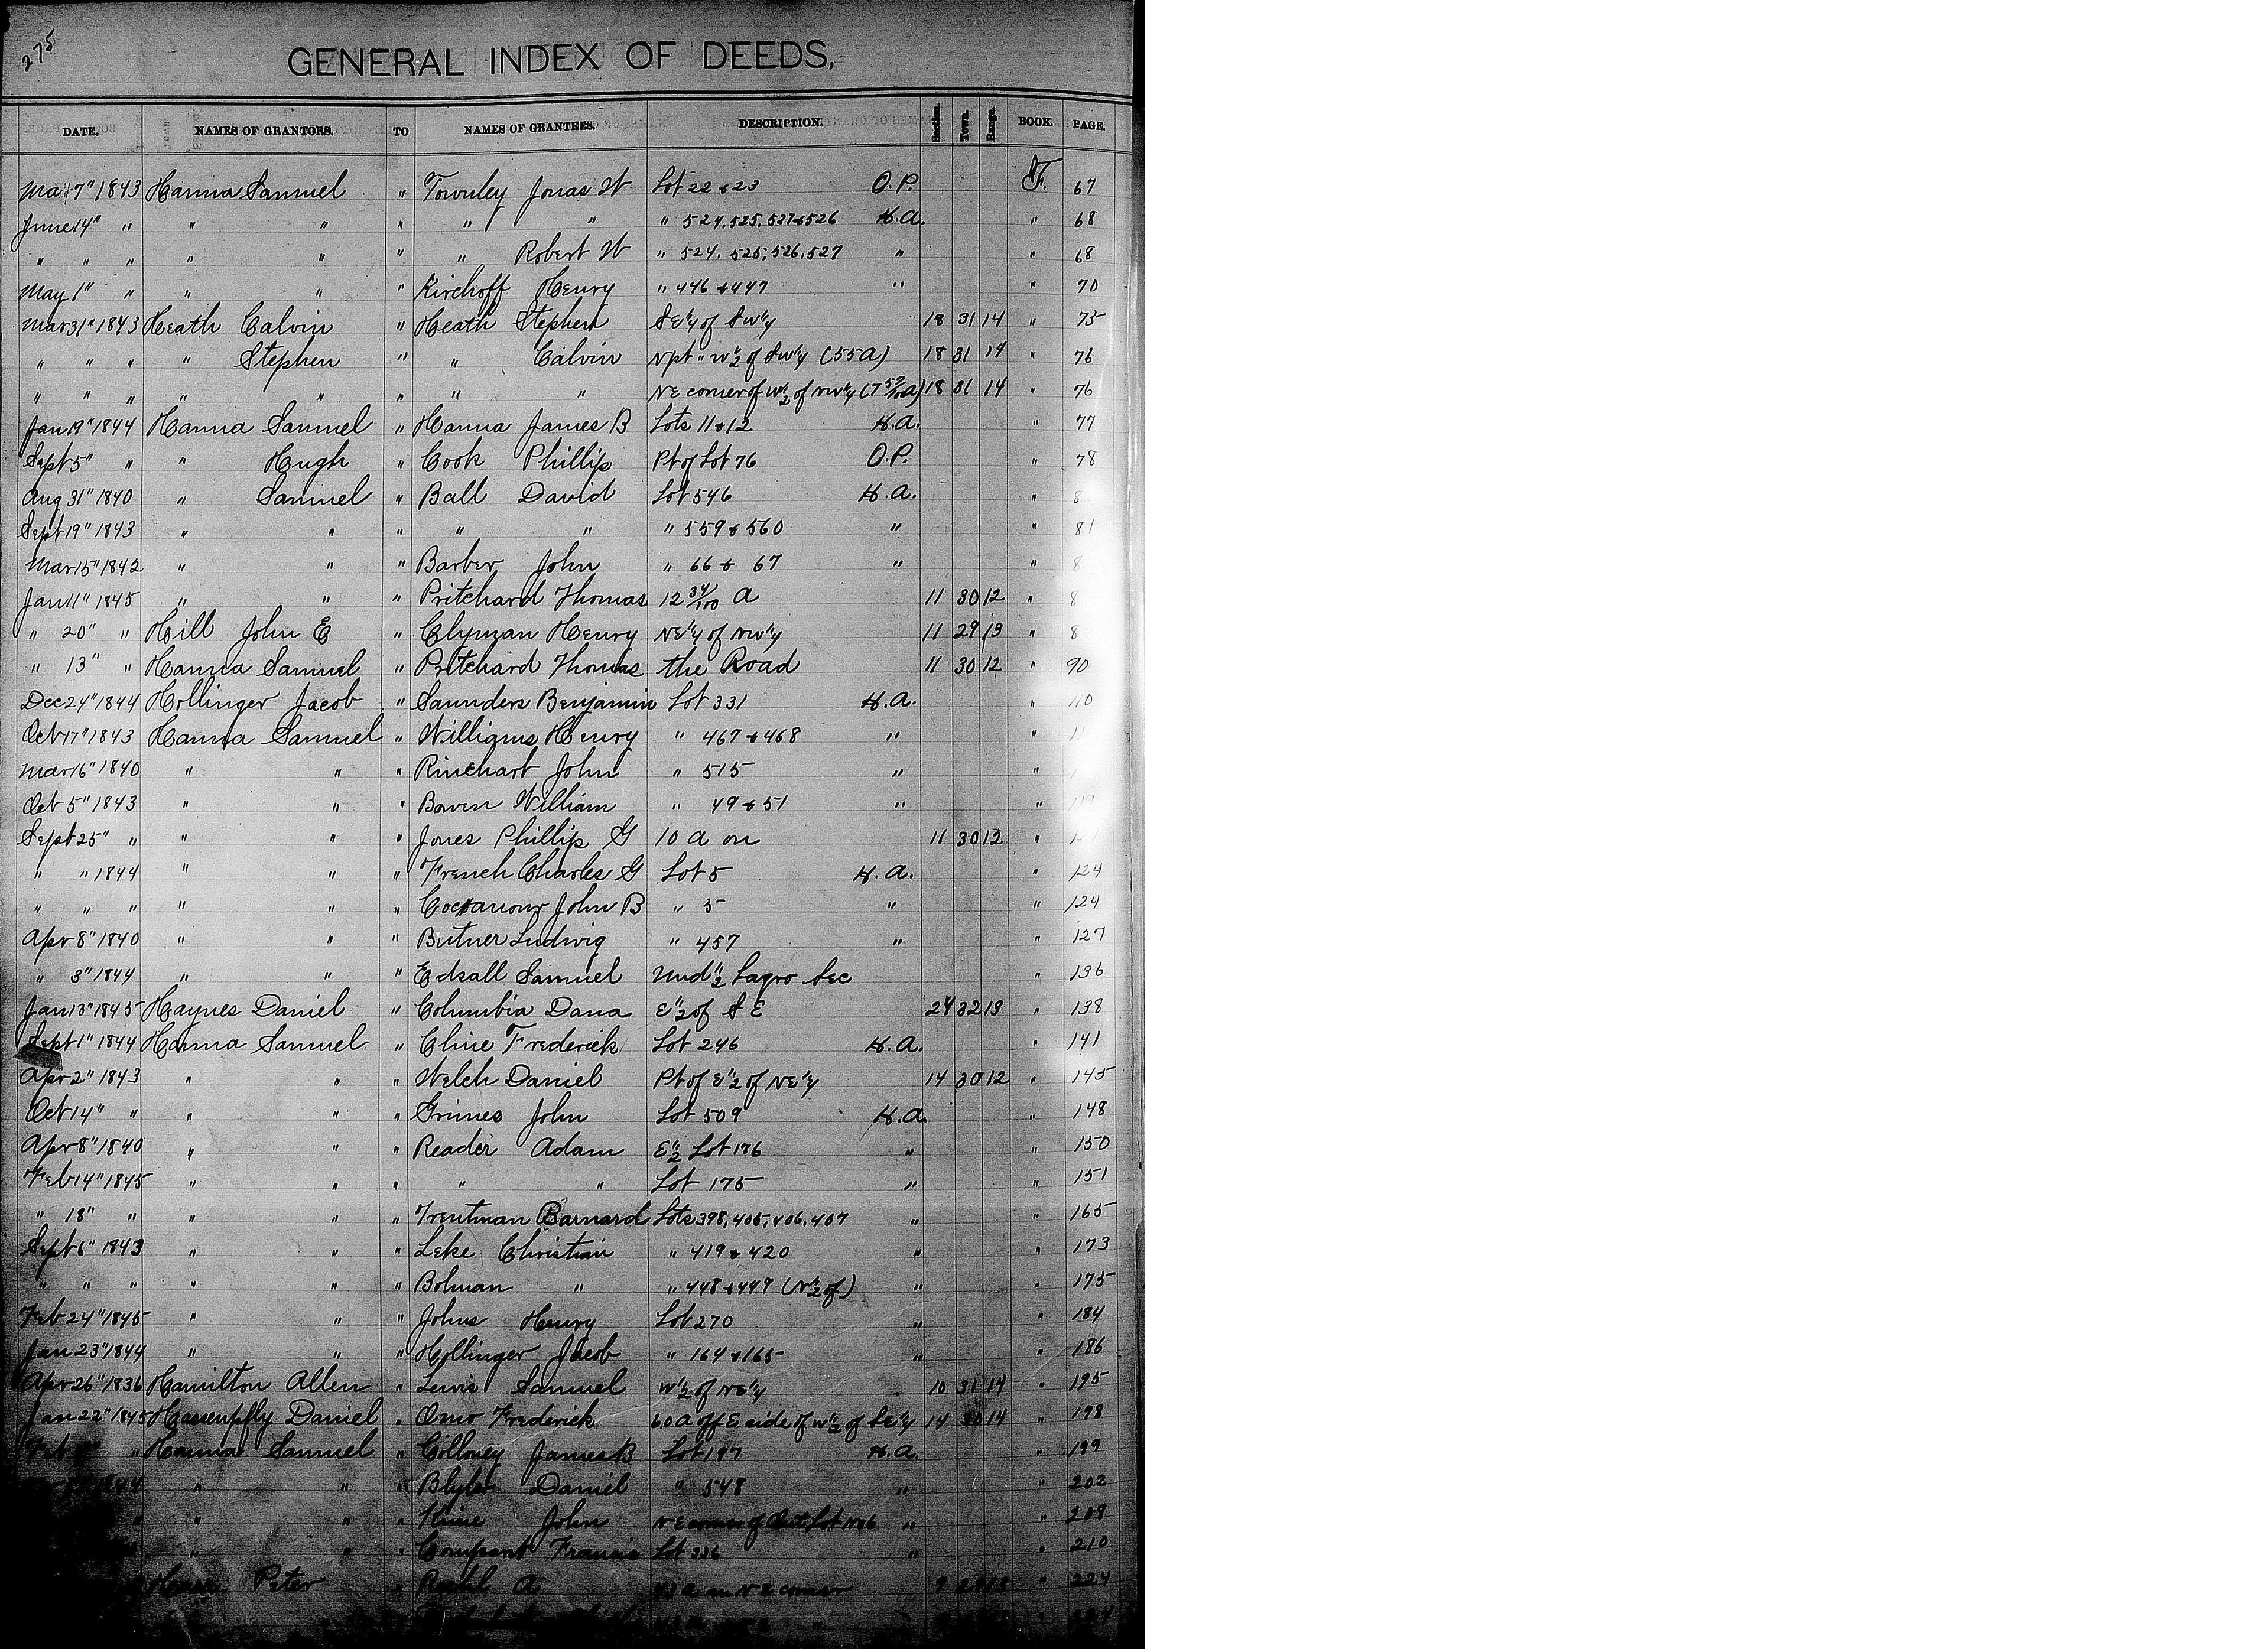 275
GENERAL INDEX OF DEEDS,
DATE. NAMES OF GRANTORS. TO NAMES OF GRANTEES. DESCRIPTION. Section. Town. Range. BOOK. PAGE.
7" 1843 Hanna Samuel " Townley Jonas W Lot 22 & 23 O.P. F. 67
June 14" " " " " " " " 524, 525, 527 & 526 H.a. " 68
" " " " " " " Robert W " 524, 525, 526, 527 " " 68
May 1" " " " " Kirchoff Henry " 446 & 447 " " 70
Mar 31" 1843 Heath Calvin " Heath Stephen SE 1/4 of SW 1/4 18 31 14 " 75
" " " " Stephen " " Calvin Npt " W 1/2 of SW 1/4 (55a) 18 31 14 " 76
" " " " " " " " NE corner of W 1/2 of NW 1/4 18 31 14 " 76
Jan 19" 1844 Hanna Samuel " Hanna James B Lots 11 & 12 H.a. " 77
Sept 5" " " Hugh " Cook Phillip Pt of Lot 76 O.P. " 78
Aug 31" 1840 " Samuel " Ball David Lot 546 H.a. " 8
Sept 19" 1843 " " " " " " 559 & 560 " " 81
Mar 15" 1842 " " " Barber John " 66 & 67 " " 8
Jan 11" 1845 " " " Pritchard Thomas 12 34/100 a 11 30 12 " 8
" 20" " Hill John E " Clyman Henry NE 1/4 of NW 1/4 11 29 13 " 8
" 13" " Hanna Samuel " Pritchard Thomas the Road 11 30 12 " 90
Dec 24" 1844 Hollinger Jacob " Saunders Benjamin Lot 331 H.a. " 110
Oct 17" 1843 Hanna Samuel " Williams Henry " 467 & 468 " " 11
Mar 16" 1840 " " " Rinehart John " 515 " "
Oct 5" 1843 " " " Bowen William " 49 & 51 " " 119
Sept 25" " " " " Jones Phillip G 10 a on 11 30 12 "
" " 1844 " " " French Charles G Lot 5 H.a. " 124
" " " " " " John B " 5 " " 124
Apr 8" 1840 " " " Butner Ludwig " 457 " " 127
" 3" 1844 " " " Edsall Samuel Und 1/2 Lagro Sec " 136
Jan 13" 1845 Haynes Daniel " Columbia Dana E 1/2 of SE 24 32 13 " 138
Sept 1" 1844 Hanna Samuel " Cline Frederick Lot 246 H.a. " 141
Apr 2" 1843 " " " Welch Daniel Pt of E 1/2 of NE 1/4 14 30 12 " 145
Oct 14" " " " " Grimes John Lot 509 H.a. " 148
Apr 8" 1840 " " " Reader Adam E 1/2 Lot 176 " " 150
Feb 14" 1845 " " " " " Lot 175 " " 151
" 18" " " " " Trentman Barnard Lots 398, 405, 406, 407 " " 165
Sept 6" 1843 " " " Leke Christian " 419 & 420 " " 173
" " " " " " Bolman " " 448 & 449 (N 1/2 of) " " 175
Feb 24" 1845 " " " Johns Henry Lot 270 " " 184
Jan 23" 1844 " " " Hollinger Jacob " 164 & 165 " " 186
Apr 26" 1836 Hamilton Allen " Lewis Samuel W 1/2 of NE 1/4 10 31 14 " 195
Jan 22" 1845 Daniel " Omo Frederick 60 a off E side of W 1/2 of SE 1/4 14 30 14 " 198
Hanna Samuel " James B Lot 197 H.a. " 199
1844 " " " Daniel " 548 " " 202
" " " John NE corner of Out Lot No 6 " " 208
" " " Francis Lot 336 " " 210
Peter " NE corner " 224